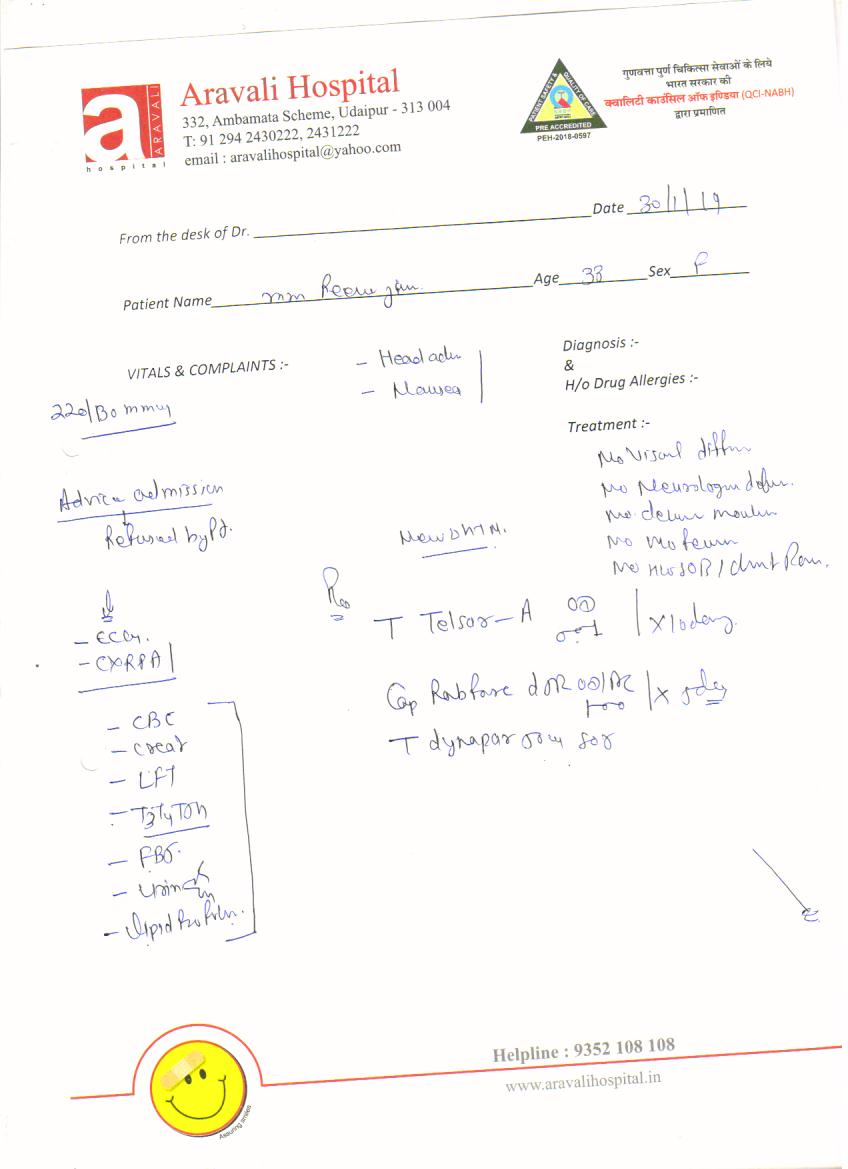 Aravali Hospital
332, Ambamata Scheme, Udaipur - 313 004
T: 91 294 2430222, 2431222
email : aravalihospital@yahoo.com
a
ARAVALI
hospital
PATIENT SAFETY & QUALITY OF CARE
PRE ACCREDITED
PEH-2018-0597
गुणवत्ता पुर्ण चिकित्सा सेवाओं के लिये
भारत सरकार की
क्वालिटी काउंसिल ऑफ इण्डिया (QCI-NABH)
द्वारा प्रमाणित
Date 30/1/19
From the desk of Dr.
Patient Name Age 33 Sex F
VITALS & COMPLAINTS :-
- Headache
- Nausea
220/130 mmHg
Diagnosis :-
&
H/o Drug Allergies :-
Treatment :-
No Visual
No Neurological
No
No
No H/o SOB / Chest Pain.
Advice admission
Refused by Pt.
New HTN.
Rx
- ECG.
- CXR PA
T Telsar-A x 10 days
Cap DSR x 5 days
T dynapar SOS
- CBC
- Creat
- LFT
- T3T4TSH
- FBS.
- Urine
- Lipid Profile.
Helpline : 9352 108 108
www.aravalihospital.in
Assuring smiles